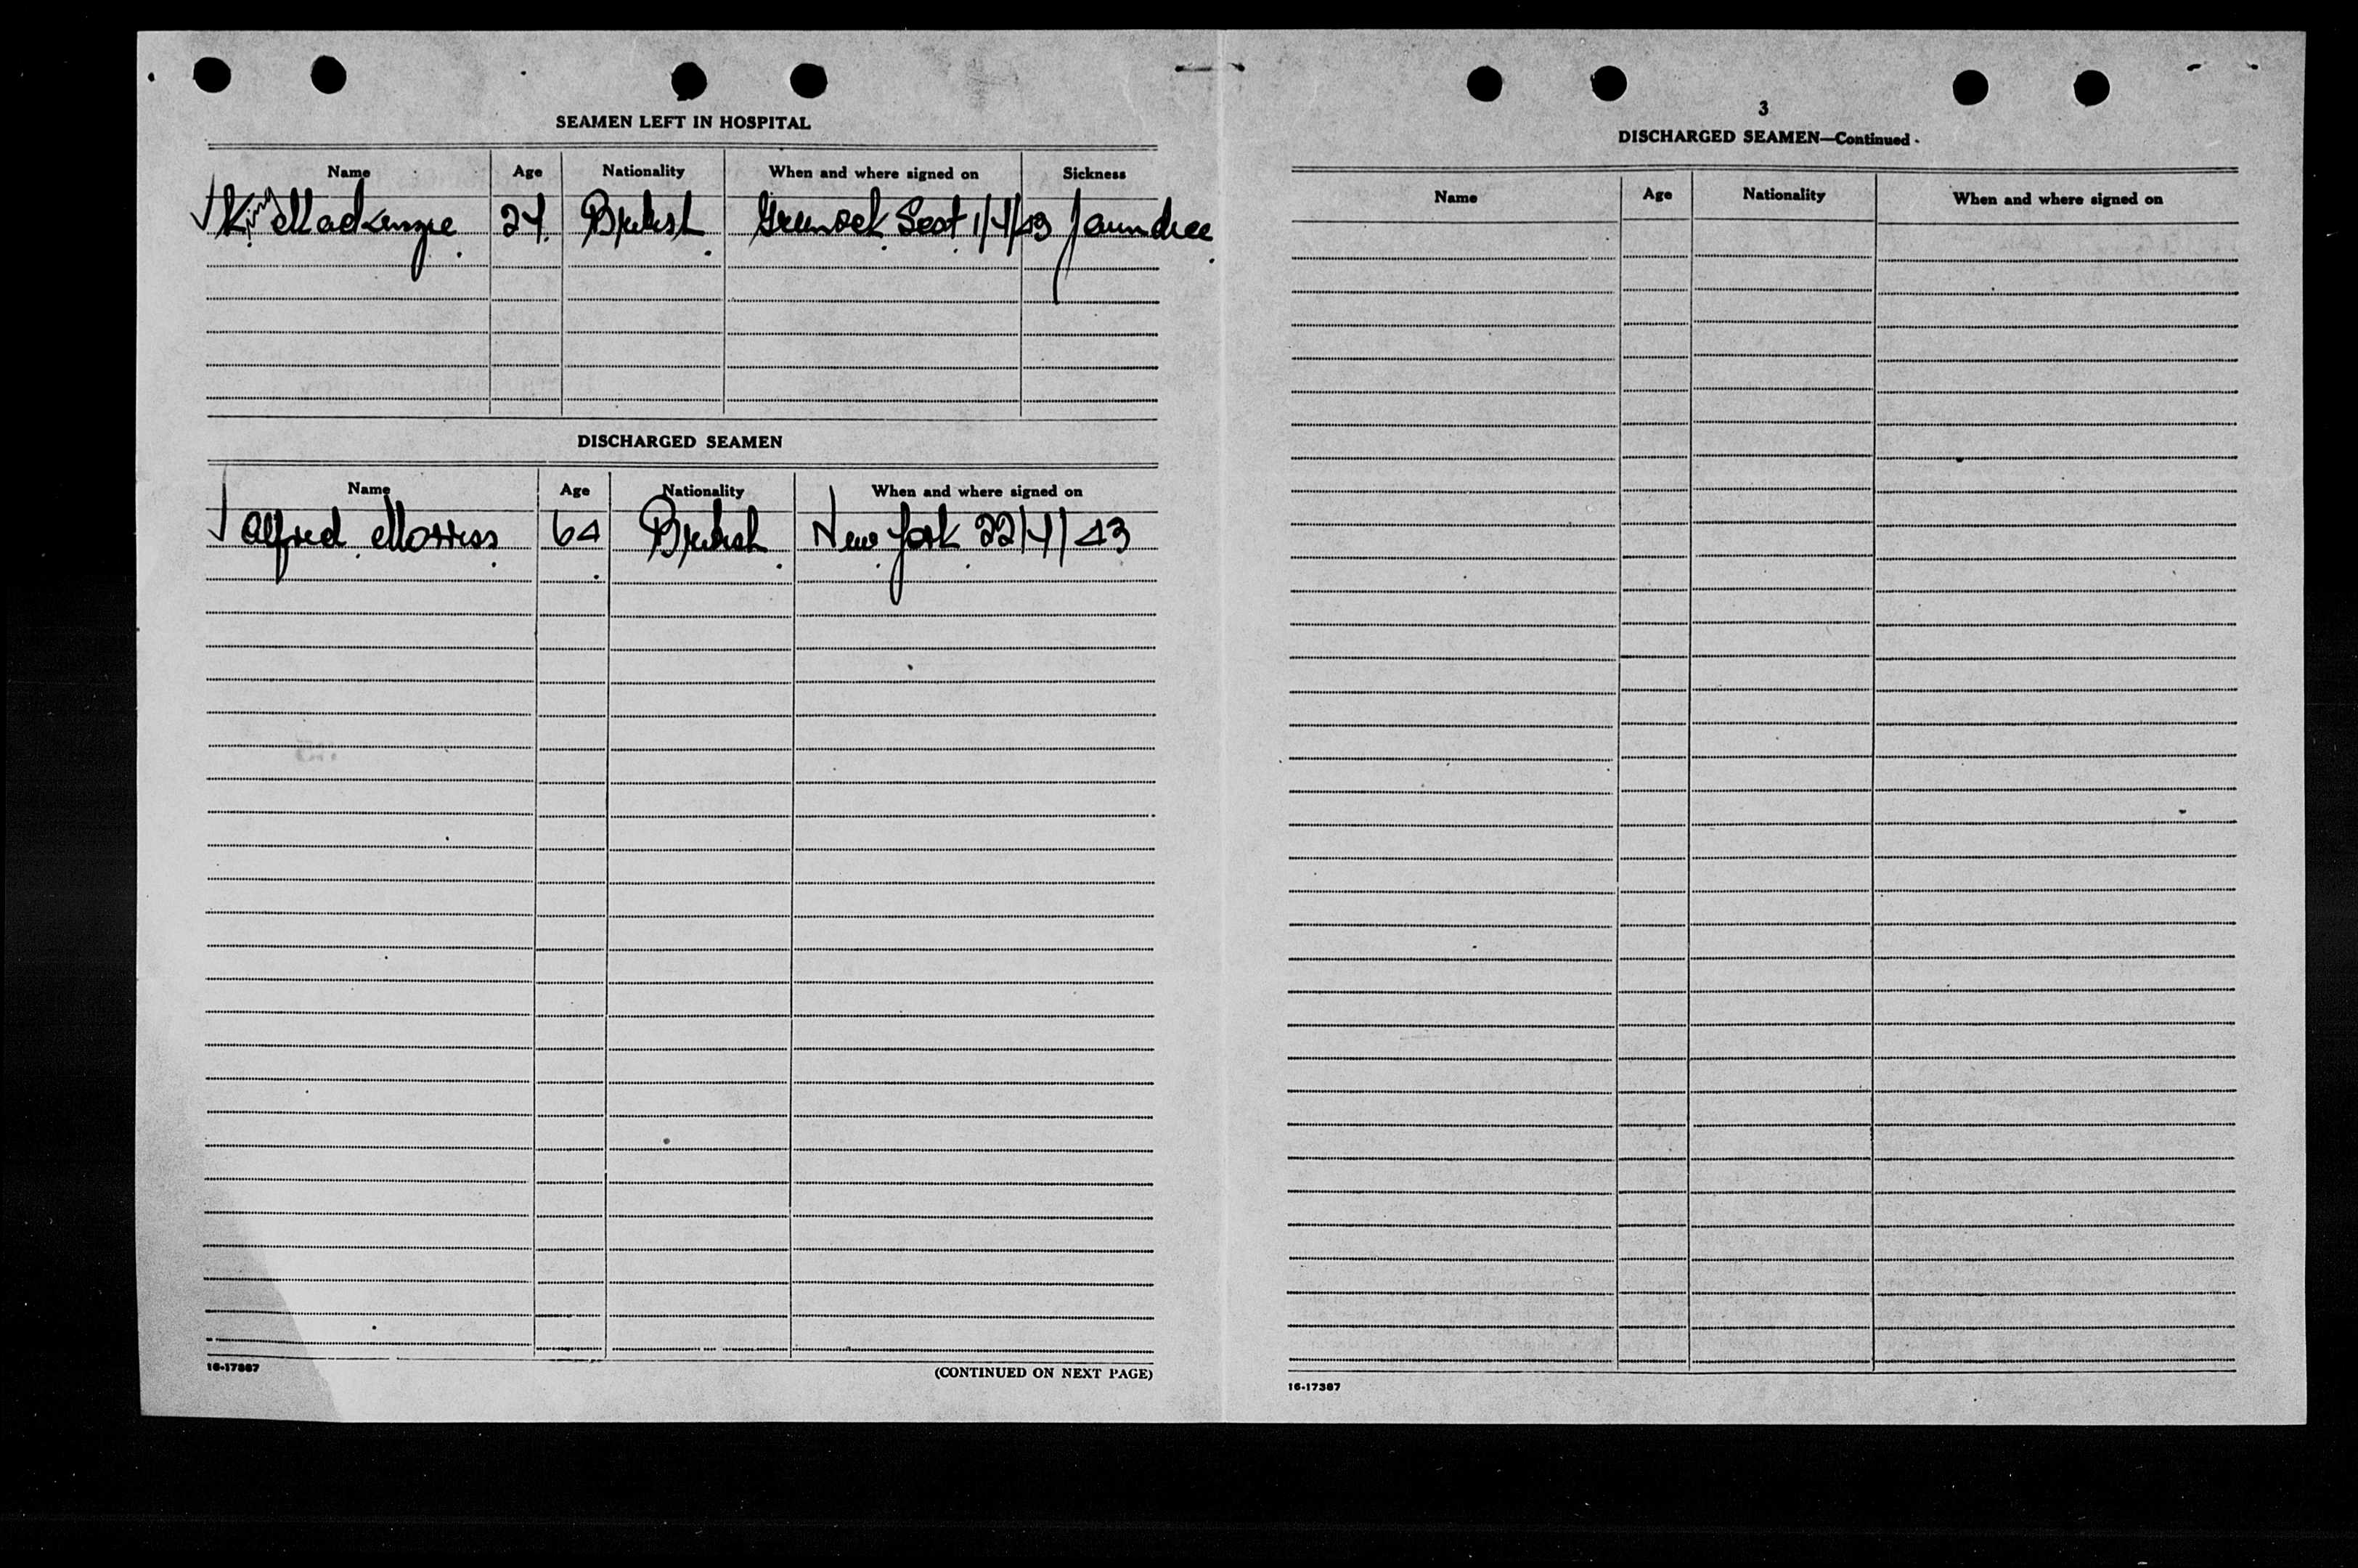 SEAMEN LEFT IN HOSPITAL
Name Age Nationality When and where signed on Sickness
King MacKenzie 24 British Greenock Scot 1/4/43 Jaundice
DISCHARGED SEAMEN
Name Age Nationality When and where signed on
Alfred Morriss 64 British New York 22/4/43
16-17387
(CONTINUED ON NEXT PAGE)
3
DISCHARGED SEAMEN—Continued
Name Age Nationality When and where signed on
16-17387